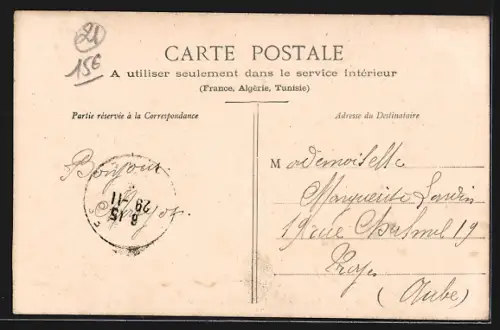 21
15€
CARTE POSTALE
A utiliser seulement dans le service intérieur
(France, Algérie, Tunisie)
Partie réservée à la Correspondance
Adresse du Destinataire
Bonjour
8 15
29 - 11
Mademoiselle
Marguerite
19 rue 19
Troyes
(Aube)